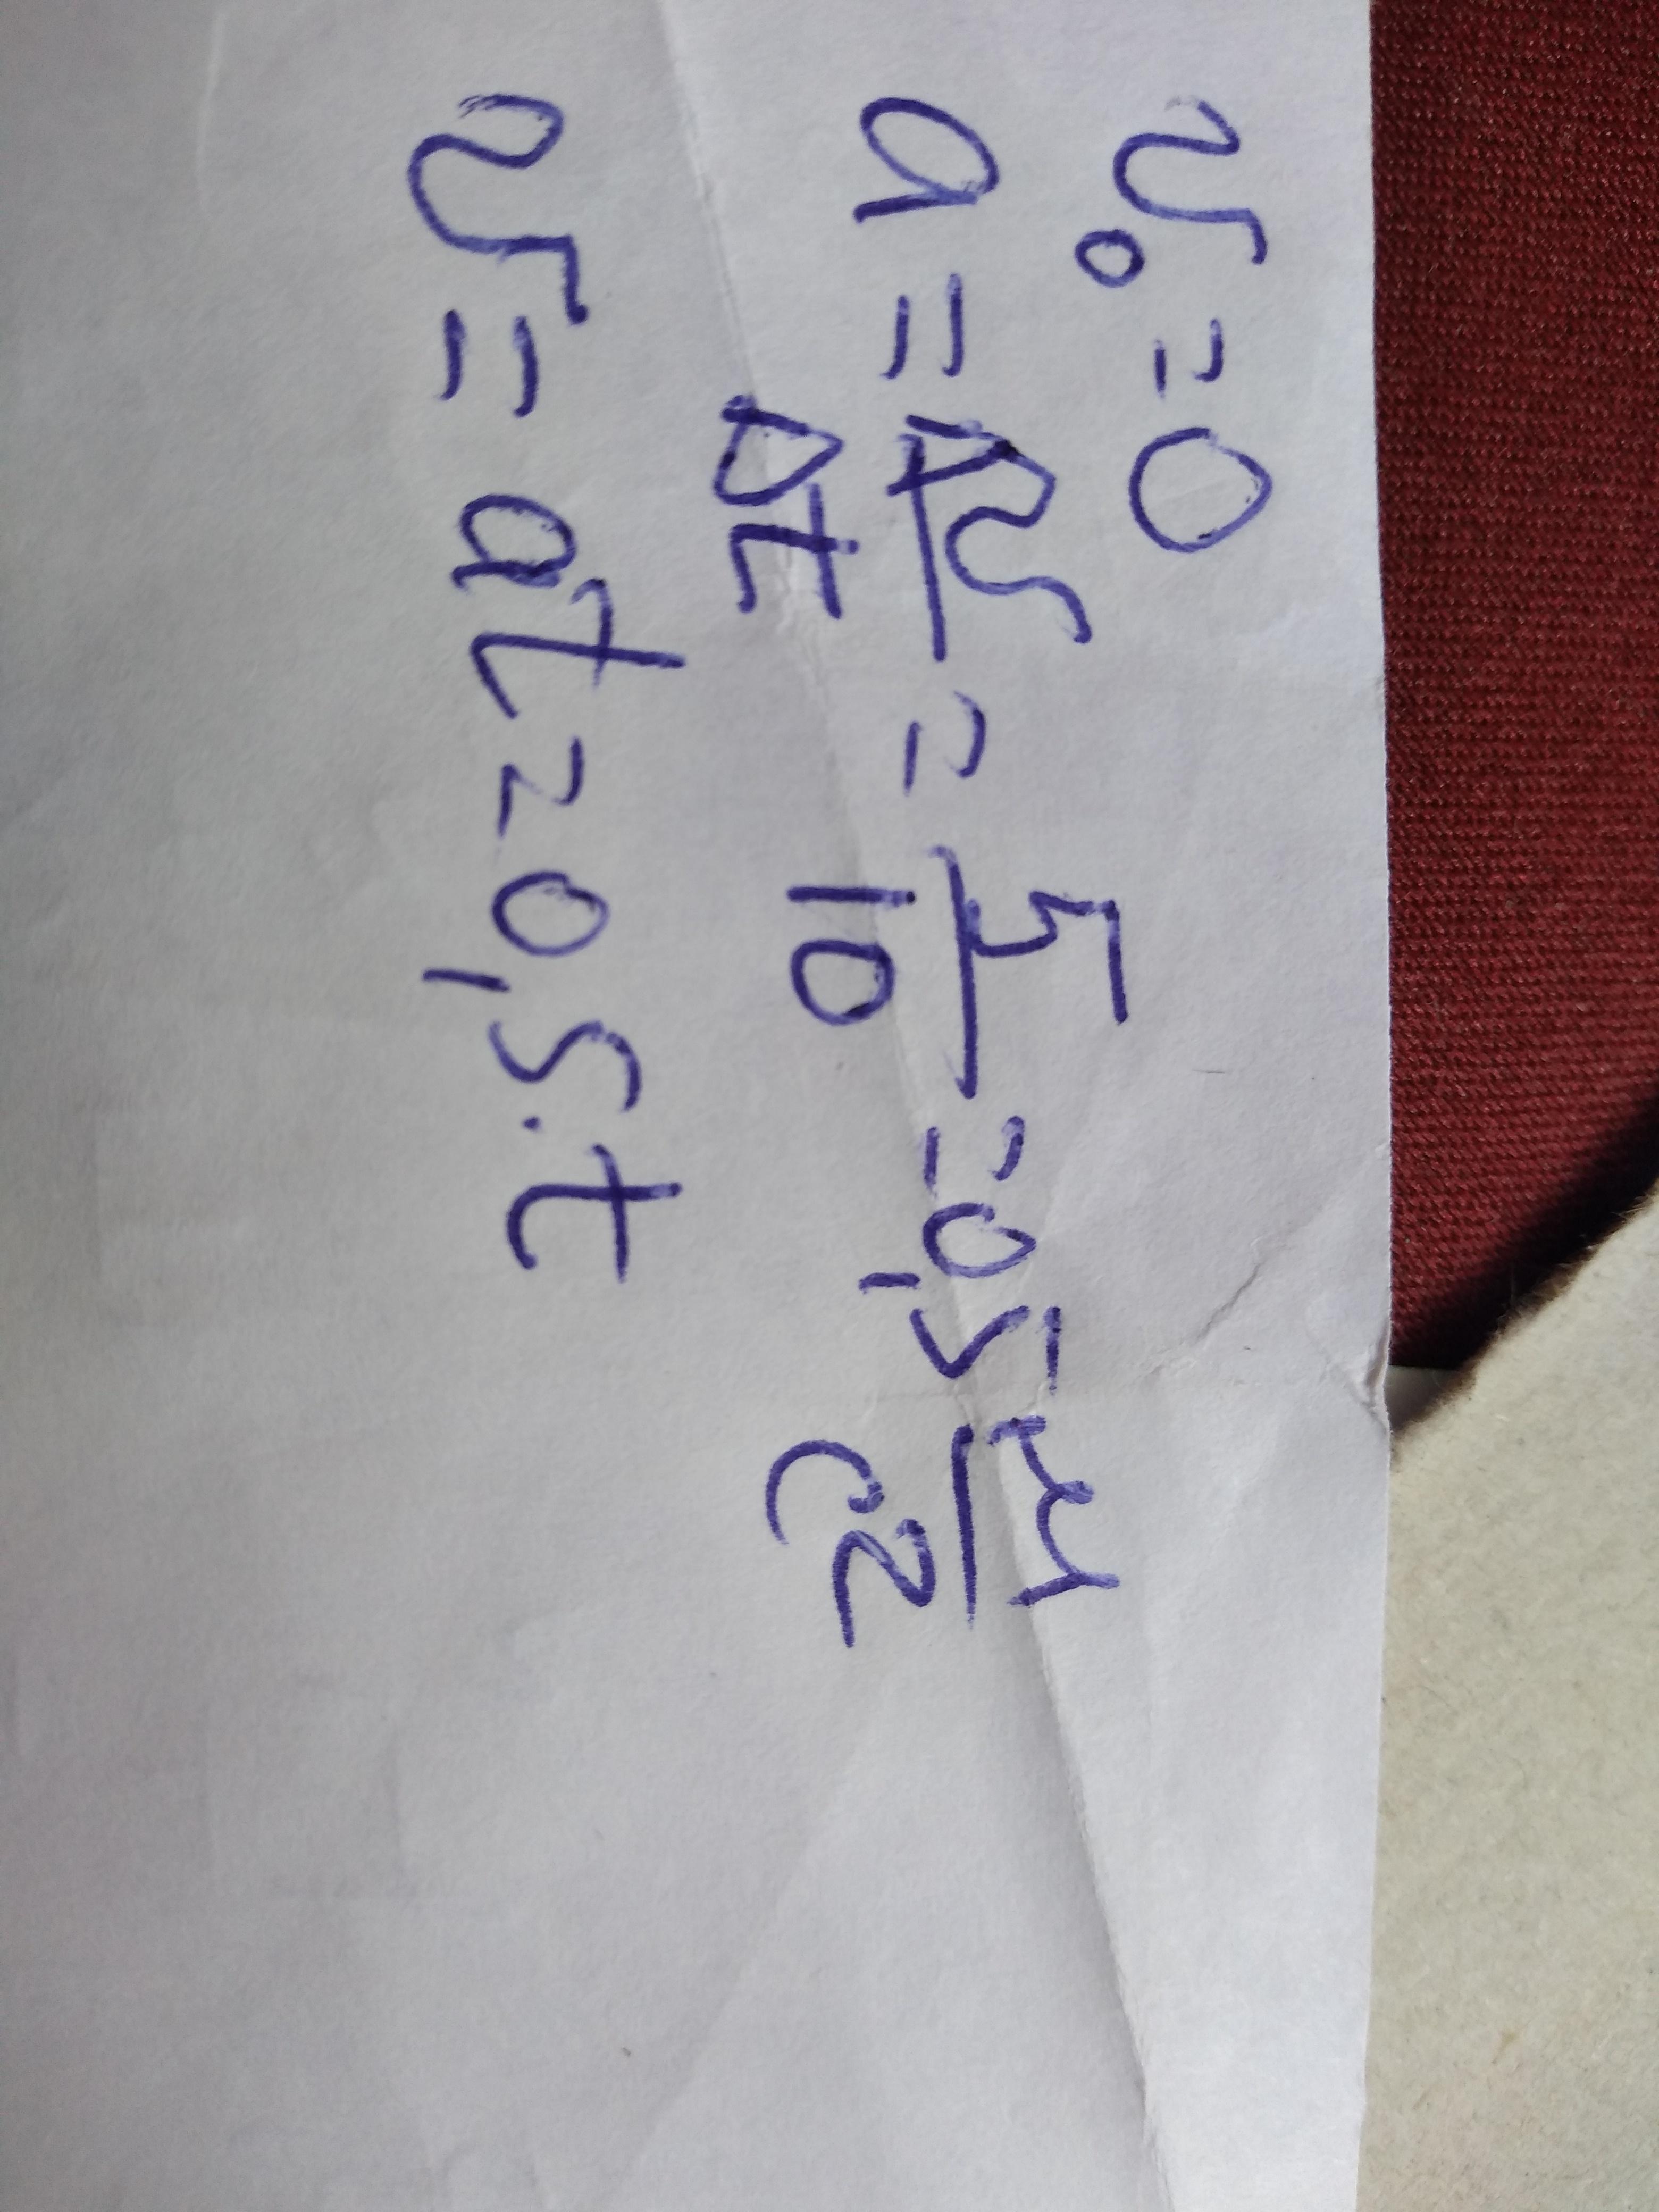 v₀ = 0
a = Δv/Δt = 5/10 = 0,5 м/с²
v = at = 0,5·t